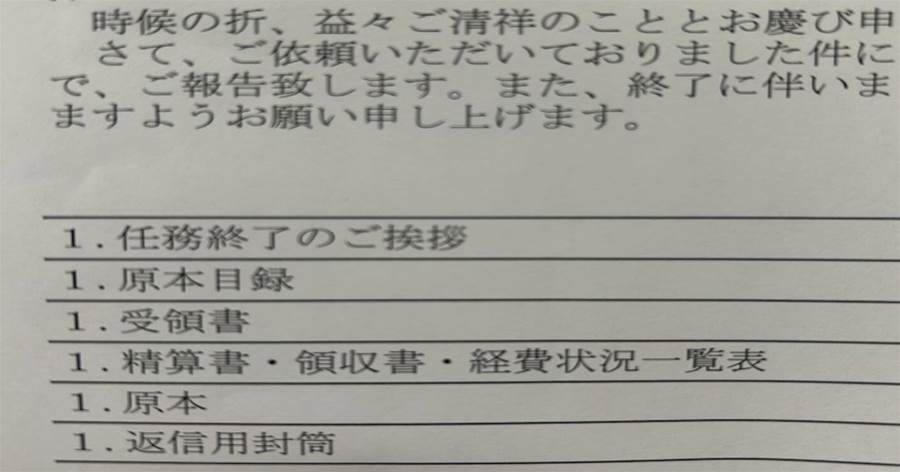 時候の折、益々ご清祥のこととお慶び申
さて、ご依頼いただいておりました件に
で、ご報告致します。また、終了に伴いま
ますようお願い申し上げます。
1.任務終了のご挨拶
1.原本目録
1.受領書
1.精算書・領収書・経費状況一覧表
1.原本
1.返信用封筒